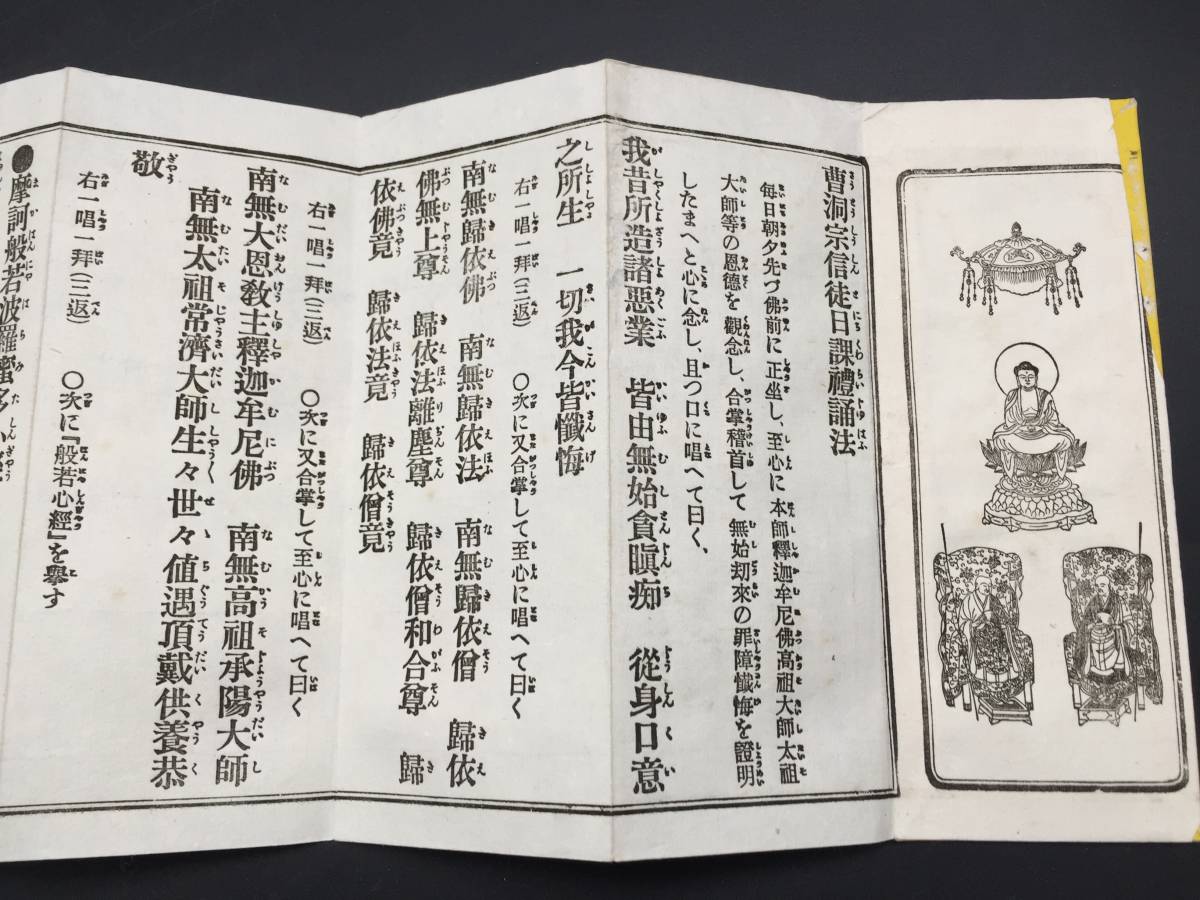 曹洞宗信徒日課禮誦法
每日朝夕先づ佛前に正坐し、至心に 本師釋迦牟尼佛高祖大師太祖
大師等の恩德を觀念し、合掌稽首して 無始劫來の罪障懺悔を證明
したまへと心に念し、且つ口に唱へて曰く、
我昔所造諸惡業 皆由無始貪瞋痴 從身口意
之所生 一切我今皆懺悔
右一唱一拜(三返) 〇次に又合掌して至心に唱へて曰く
南無歸依佛 南無歸依法 南無歸依僧 歸依
佛無上尊 歸依法離塵尊 歸依僧和合尊 歸
依佛竟 歸依法竟 歸依僧竟
右一唱一拜(三返) 〇次に又合掌して至心に唱へて曰く
南無大恩敎主釋迦牟尼佛 南無高祖承陽大師
南無太祖常濟大師生々世々値遇頂戴供養恭
敬
右一唱一拜(三返) 〇次に『般若心經』を擧す
●摩訶般若波羅蜜多心